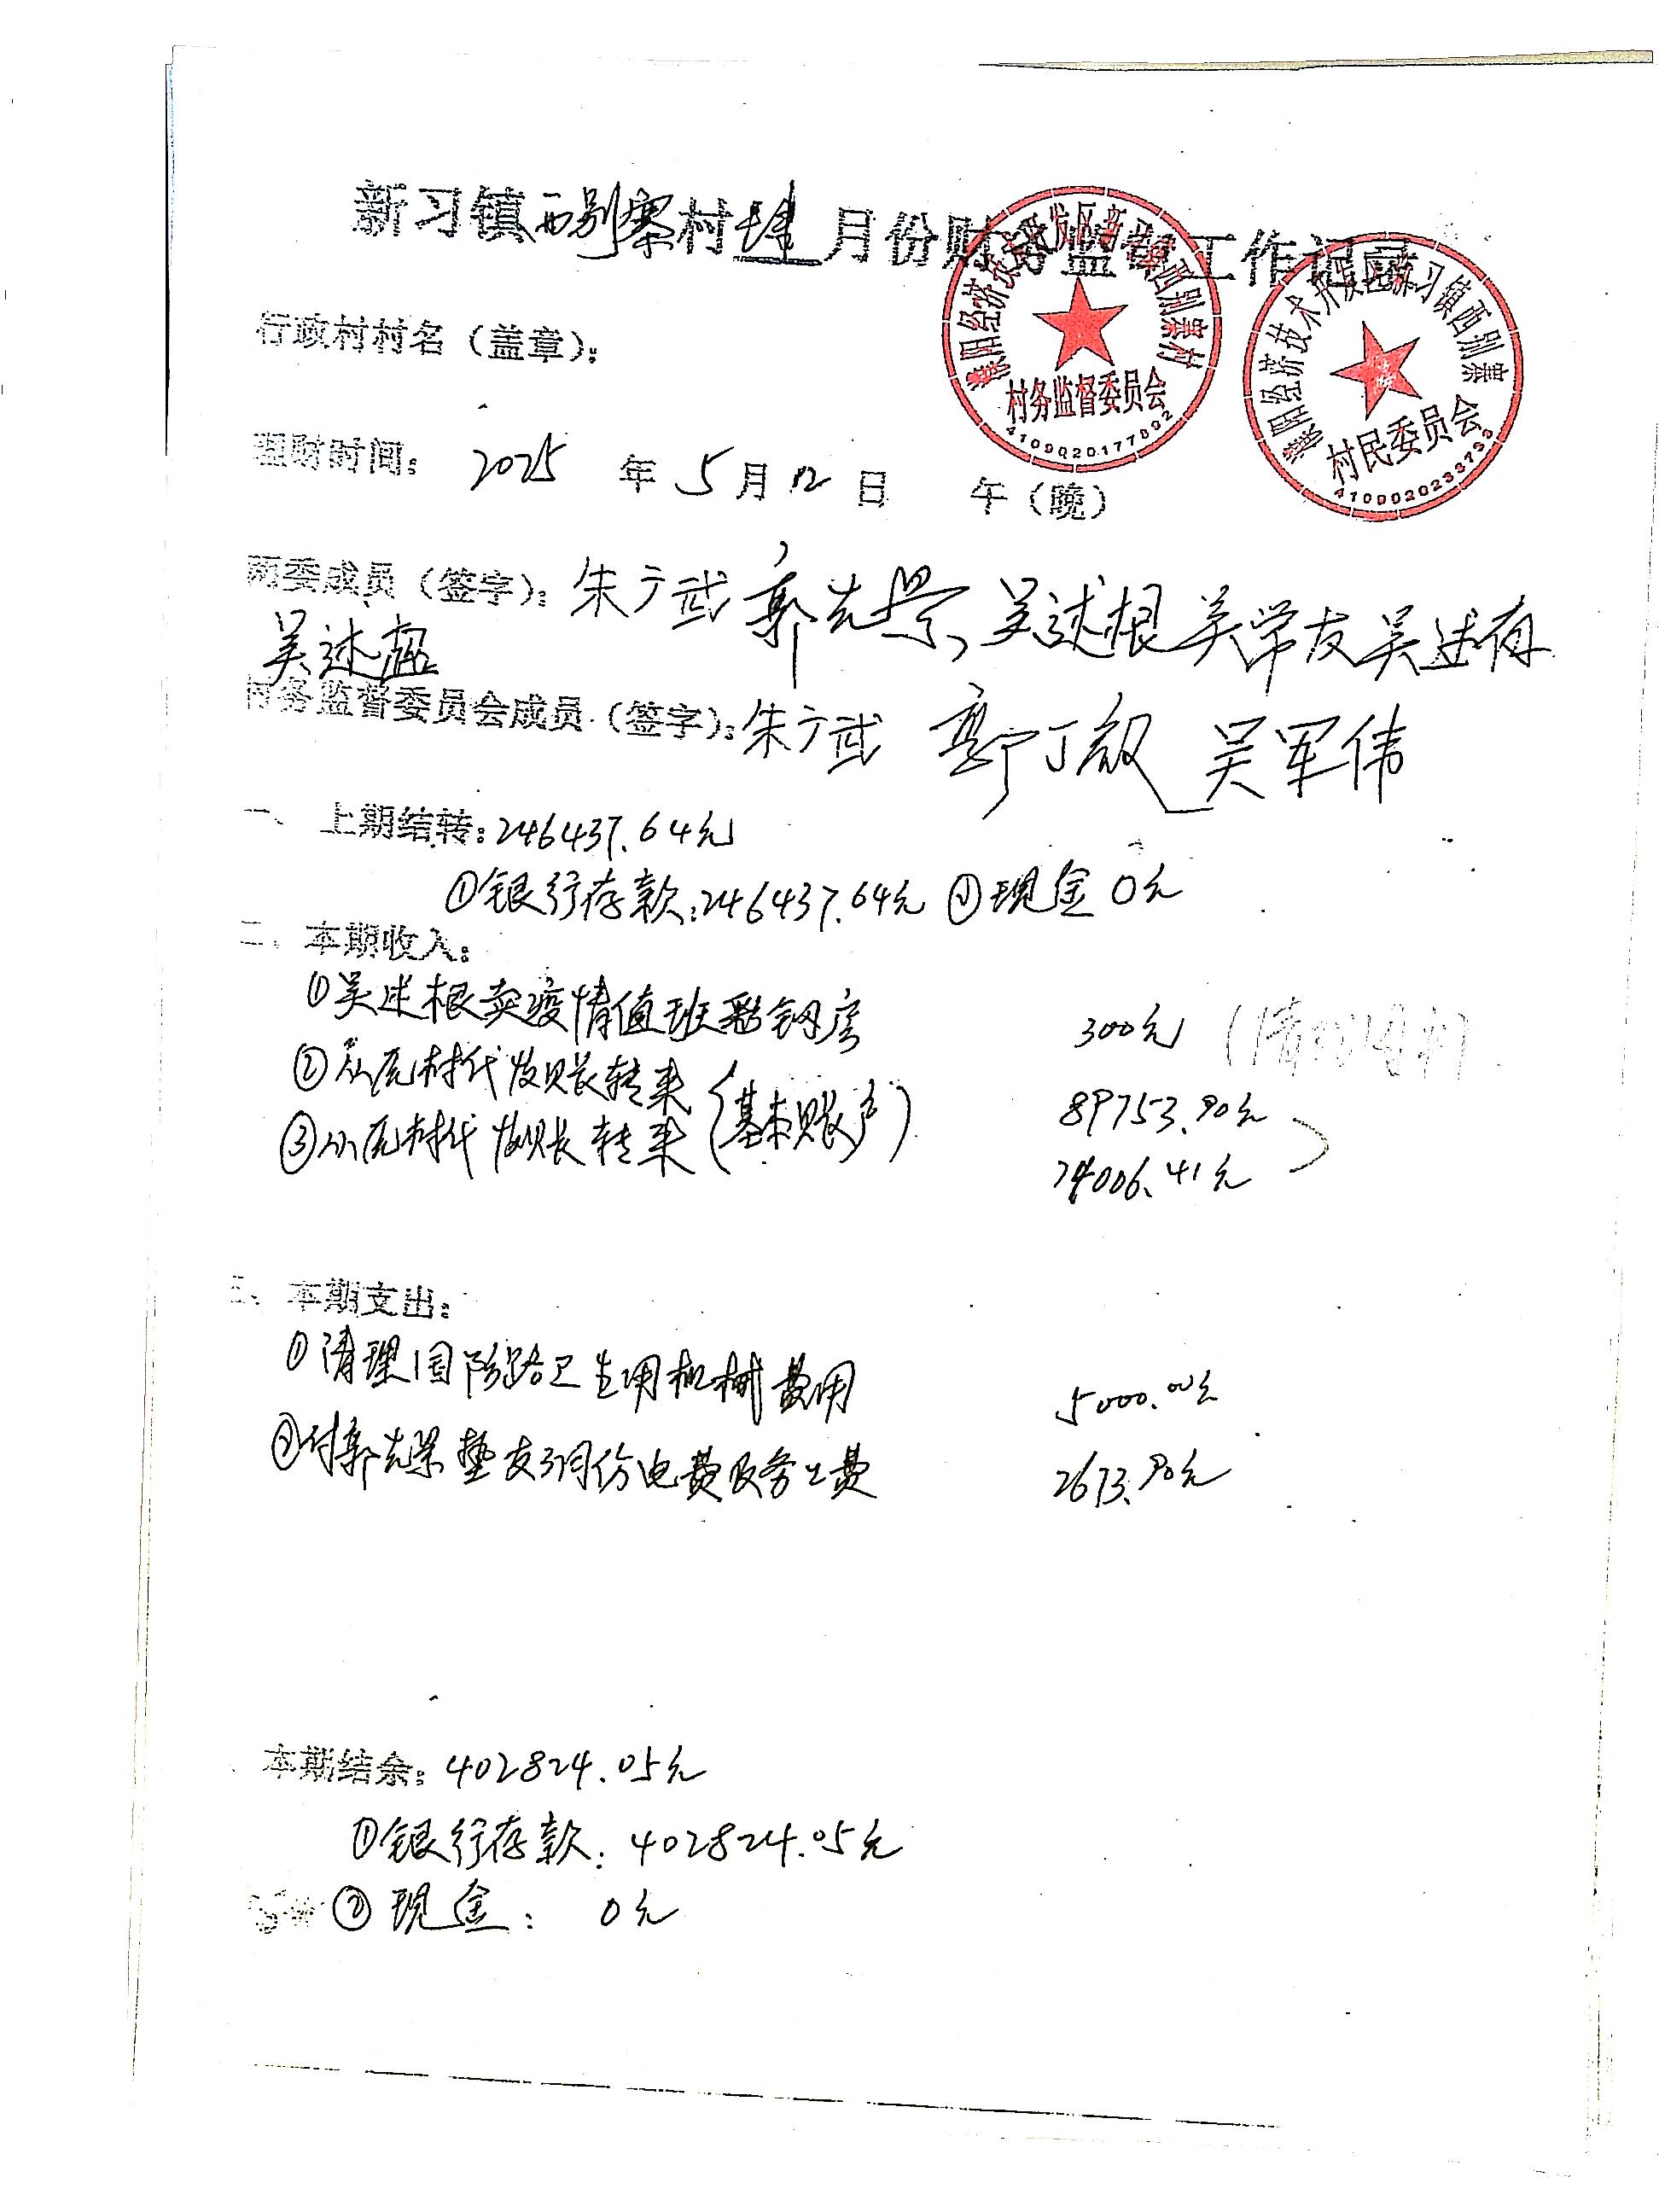 新习镇西别寨村肆月份财务监督工作记录
濮阳经济技术开发区新习镇西别寨村
村务监督委员会
4109020177892
濮阳经济技术开发区新习镇西别寨
村民委员会
4109020233793
行政村村名（盖章）：
理财时间： 2025 年 5 月 12 日 午（晚）
两委成员（签字）：朱广武 郭先景 吴述根 吴常友 吴述存
吴述超
村务监督委员会成员（签字）：朱广武 吴军伟
一、上期结转：246437.64元
①银行存款：246437.64元 ②现金 0元
二、本期收入：
①吴述根卖疫情值班彩钢房 300元
②从瓦村代发账转来 89753.90元
③从瓦村代发账转来（基本账户） 74006.41元
三、本期支出：
①清理国防路卫生用机械费用 5000.00元
②付郭先景垫支3月份电费及务工费 2673.90元
本期结余：402824.05元
①银行存款：402824.05元
②现金： 0元